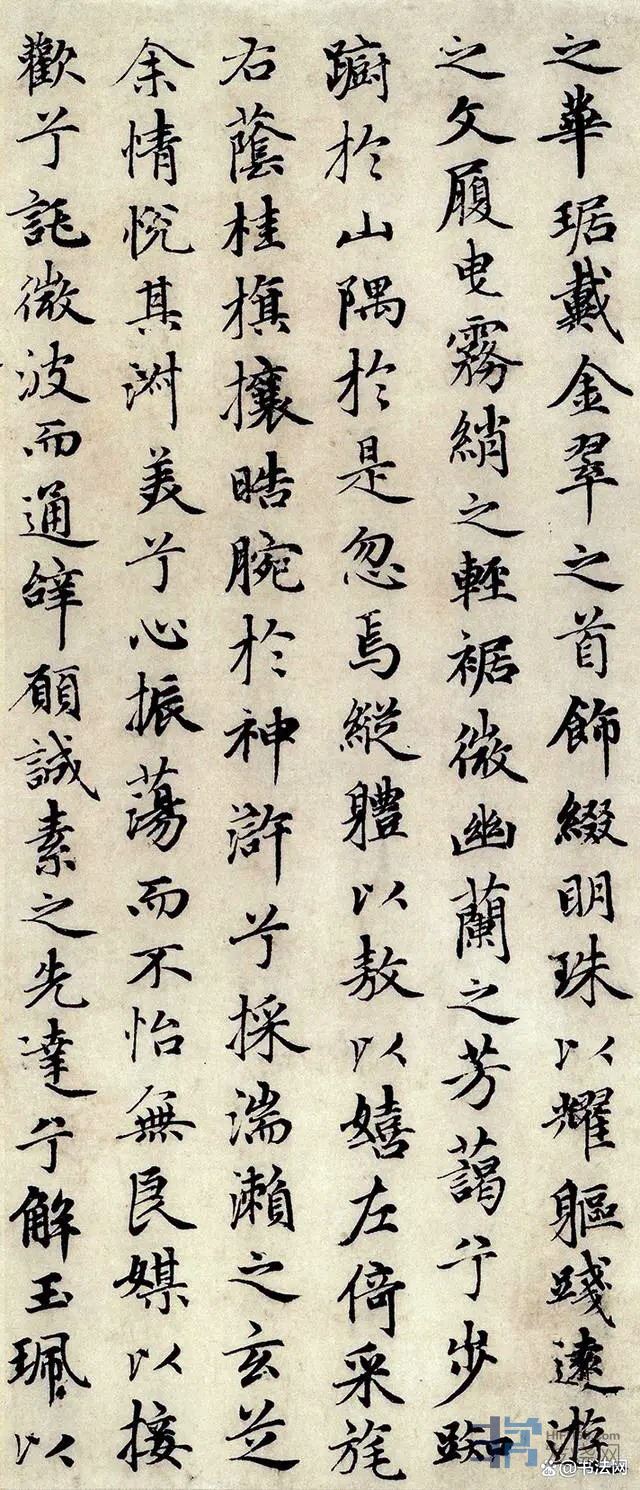 之華琚戴金翠之首飾綴明珠以耀軀踐遠游
之文履曳霧綃之輕裾微幽蘭之芳藹兮步踟
躕於山隅於是忽焉縱軆以敖以嬉左倚采旄
右蔭桂旗攘皓腕於神滸兮採湍瀨之玄芝
余情悅其淑美兮心振蕩而不怡無良媒以接
歡兮託微波而通辭願誠素之先達兮解玉珮以
書法网